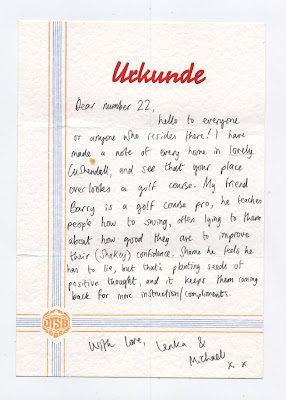 Urkunde
Dear number 22,
hello to everyone
or anyone who resides there! I have
made a note of every home in lovely
Cushendall, and see that your place
overlooks a golf course. My friend
Barry is a golf course pro, he teaches
people how to swing, often lying to them
about how good they are to improve
their (shakey) confidence. Shame he feels he
has to lie, but that's planting seeds of
positive thought, and it keeps them coming
back for more instruction/compliments.
DTSB
DDR
With love, Lenka &
Michael
x x